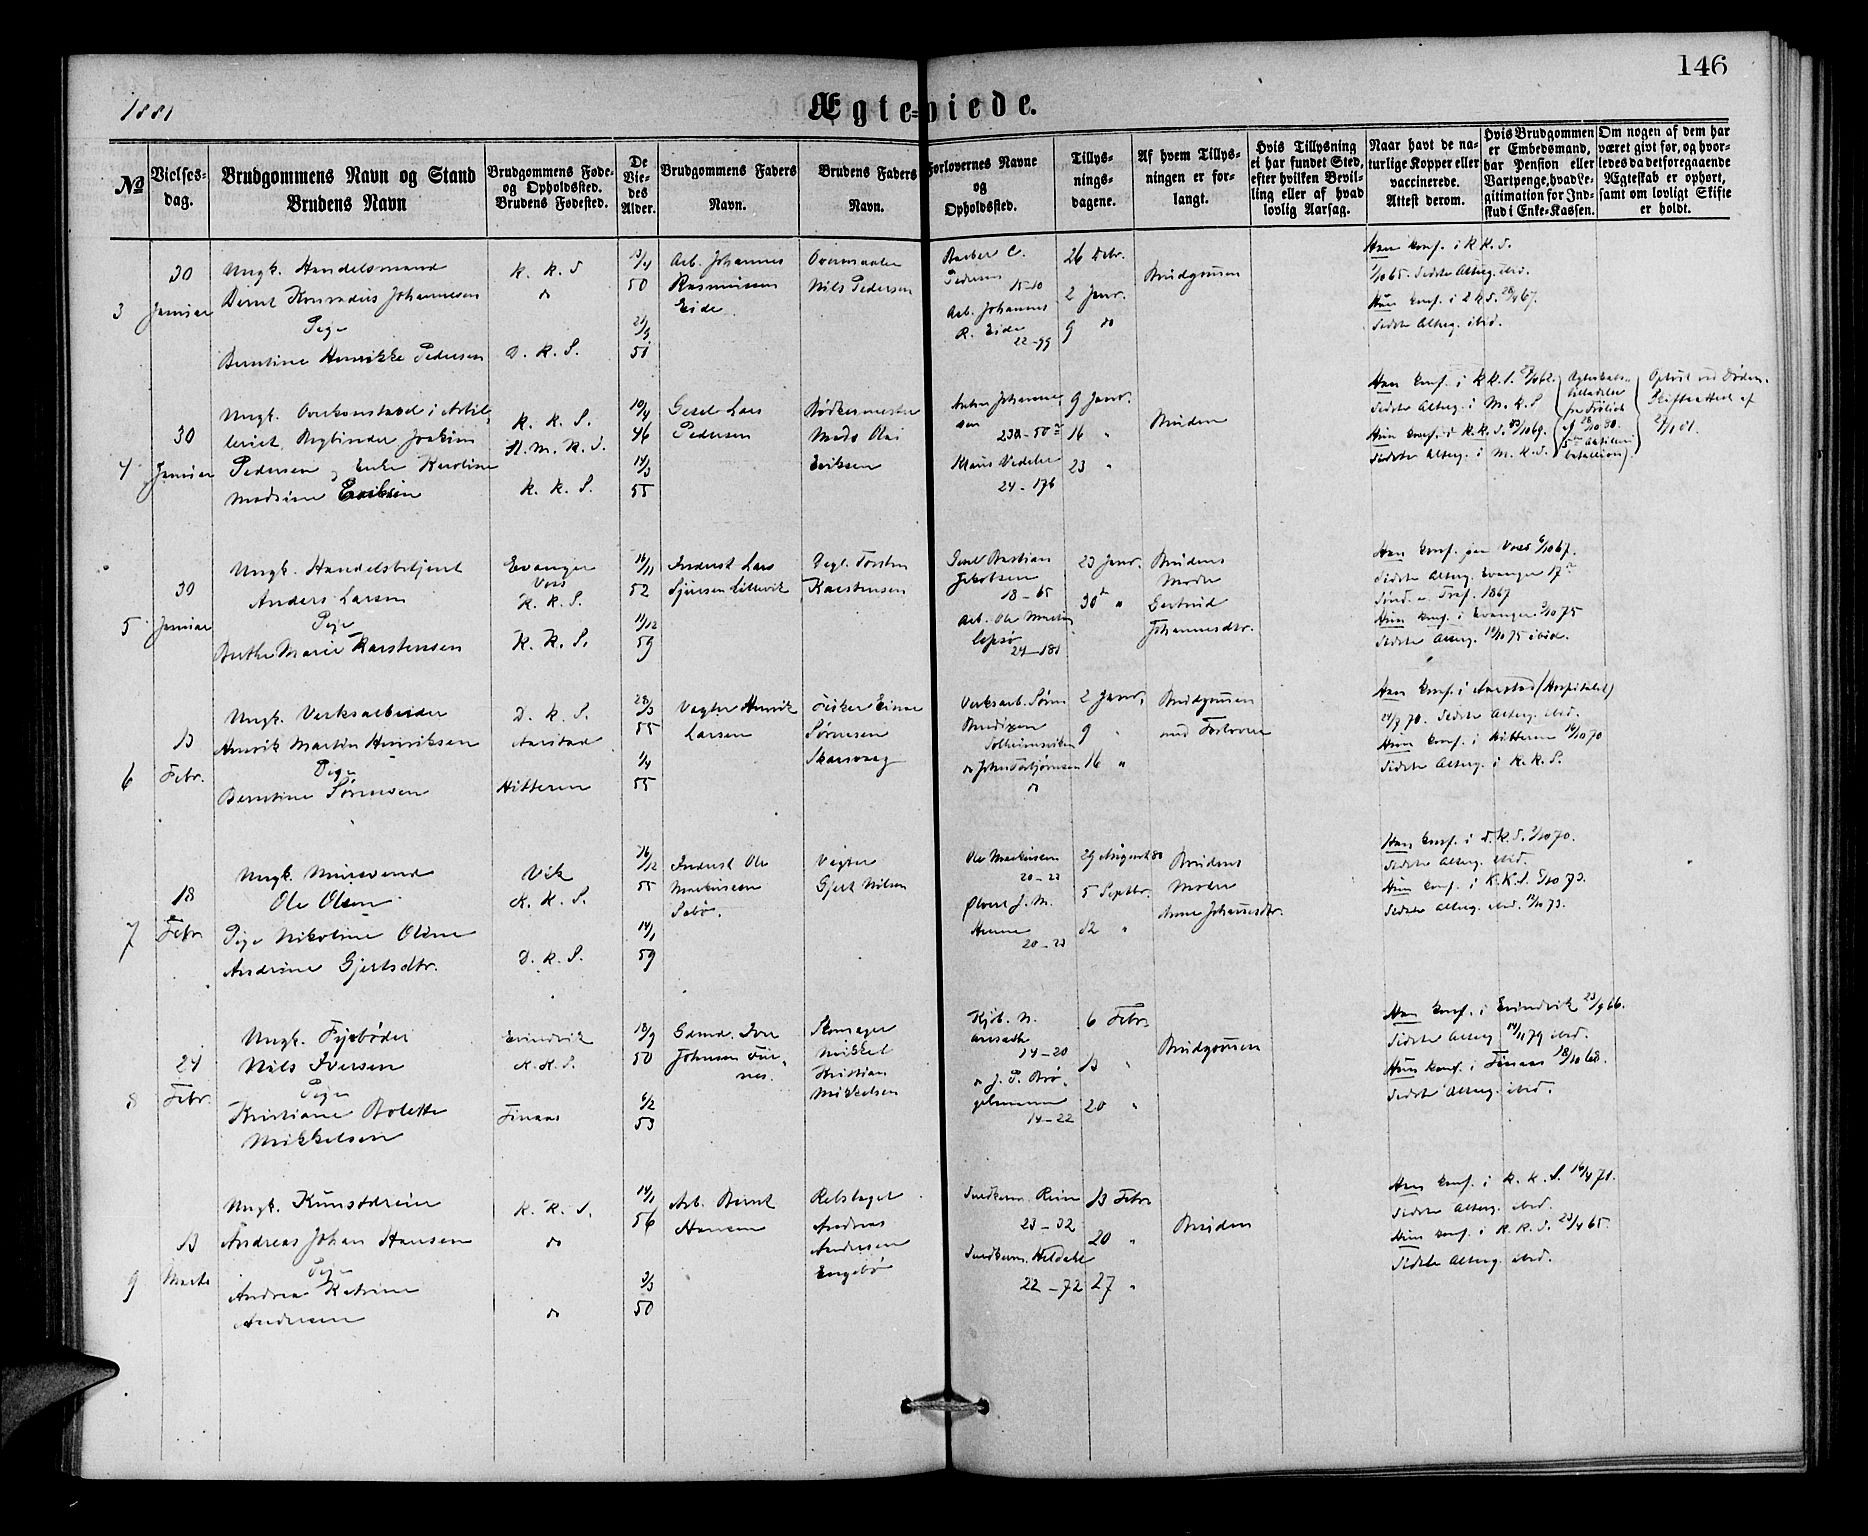 146
1881
Ægte=viede.
No
Vielses-
dag.
Brudgommens Navn og Stand
Brudens Navn
Brudgommens Føde-
og Opholdssted.
Brudens Fødested.
De
Vie-
des
Alder.
Brudgommens Faders
Navn.
Brudens Faders
Navn.
Forlovernes Navne
og
Opholdssted.
Tillys-
nings-
dagene.
Af hvem Tillys-
ningen er for-
langt.
Hvis Tillysning
ei har fundet Sted,
efter hvilken Bevil-
ling eller af hvad
lovlig Aarsag.
Naar havt de na-
turlige Kopper eller
vaccinerede.
Attest derom.
Hvis Brudgommen
er Embedsmand,
har Pension eller
Vartpenge, hvad Le-
gitimation for Ind-
skud i Enke-Kassen.
Om nogen af dem har
været givt før, og hvor-
ledes da det foregaaende
Ægteskab er ophørt,
samt om lovligt Skifte
er holdt.
3
30
Januar
Ungk. Handelsmand
Bernt Konradus Johannesen
Pige
Berntine Henrikke Pedersen
K. K. S
do
D. K. S.
50
21/9
51
Arb. Johannes
Rasmussen
Eide
Nils Pedersen
Barber C.
Pedersen
15-10
Arb. Johannes
R. Eide
22-99
26 Debr.
2 Janr.
9 do
Brudgommen
Han konf. i K. K. S.
1/10 65. Sidste Alterg. ibid.
Hun konf. i D. K. S. 28/4 67.
Sidste Alterg. ibid.
4
30
Januar
Ungk. Overkonstabel i Artil-
leriet, Bogbinder Joakim
Pedersen og Enke Karoline
Madsine Eriksen
K. K. S.
St. M. K. S.
K. K. S.
10/4
46
14/3
55
Lars
Pedersen
Bødkermester
Mads Olai
Eriksen
Anton Johannes-
sen
23a-50
Klaus Vedeler
24-176
9 Janr.
16 "
23 "
Bruden
Han konf. i K. K. S.
Sidste Alterg. i M. K. S
Hun konf. i K. K. S. 69.
Sidste Alterg. i M. K. S.
Ophørt ved Døden.
Skifteattest af
5
30
Januar
Ungk. Handelsbetjent
Anders Larsen
Pige
Berthe Marie Karstensen
Evanger
Vos
K. K. S.
K. K. S.
16/11
52
11/12
59
Inderst Lars
Sjursen Lillevik
Torsten
Karstensen
Bastian
Jakobsen
18-65
Arb. Ole Martin
Lepsø
24-181
23 Janr.
30 "
Brudens
Moder
Gertrud
Johannesdtr.
Han konf. paa Voss 6/10 67.
Sidste Alterg. Evanger 17
1867
Hun konf. i Evanger 3/10 75
Sidste Alterg. 10/10 75 ibid.
6
13
Febr.
Ungk. Verksarbeider
Henrik Martin Henriksen
Pige
Berntine Sørensen
D. K. S.
Aarstad
Hitteren
28/3
55
1/4
55
Vægter Henrik
Larsen
Fisker Einar
Sørensen
Skarsvaag
Verksarb. Søren
Bendixen
Solheimsviken
do John Torbjørnsen
do
2 Janr.
9 "
16 "
Brudgommen
med Forlovere
Han konf. i Aarstad (Hospitalet)
24/7 70. Sidste Alterg. ibid.
Hun konf. i Hitteren 16/10 70
Sidste Alterg. i K. K. S.
7
18
Febr
Ungk. Murersvend
Ole Olsen
Pige Nikoline Oline
Andrine Gjertsdtr.
Vik
K. K. S.
D. K. S.
16/12
55
14/1
59
Inderst Ole
Markussen
Sebø.
Vægter
Gjert Nilsen
Ole Markussen
20-23
J. M.
20-23
29 August 80
5 Septbr.
12 "
Brudens
Moder
Anne Johannesdtr.
Han konf. i D. K. S. 2/10 70.
Sidste Alterg. ibid.
Hun konf. i K. K. S. 5/10 73.
Sidste Alterg. ibid. 12/10 73.
8
24
Febr.
Ungk. Fyrbøder
Nils Iversen
Pige
Kristiane Bolette
Mikkelsen
Evindvik
K. K. S.
Finaas
18/9
50
6/2
53
Gdmd. Iver
Johnsen Fur-
nes.
Skomager
Mikkel
Kristian
Mikkelsen
Kjøb. N.
14-20
do J. P. Brø-
gelmann
14-22
6 Febr
13 "
20 "
Brudgommen
Han konf. i Evindvik 23/9 66.
Sidste Alterg 79 ibid.
Hun konf. i Finaas 18/10 68.
Sidste Alterg. ibid.
9
13
Marts
Ungk. Kunstdreier
Andreas Johan Hansen
Pige
Andrea Katrine
Andersen
K. K. S.
do
do
14/1
56
3/3
50
Arb. Bernt
Hansen
Rebslager
Andreas
Andersen
Engebø
Snedkerm. Reim
23-32
Snedkerm. Heldahl
22-72
13 Febr
20 "
27 "
Bruden
Han konf. i K. K. S. 16/4 71.
Sidste Alterg. ibid.
Hun konf. i K. K. S. 23/4 65.
Sidste Alterg. ibid.